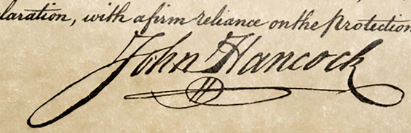 laration, with a firm reliance on the Protection
John Hancock